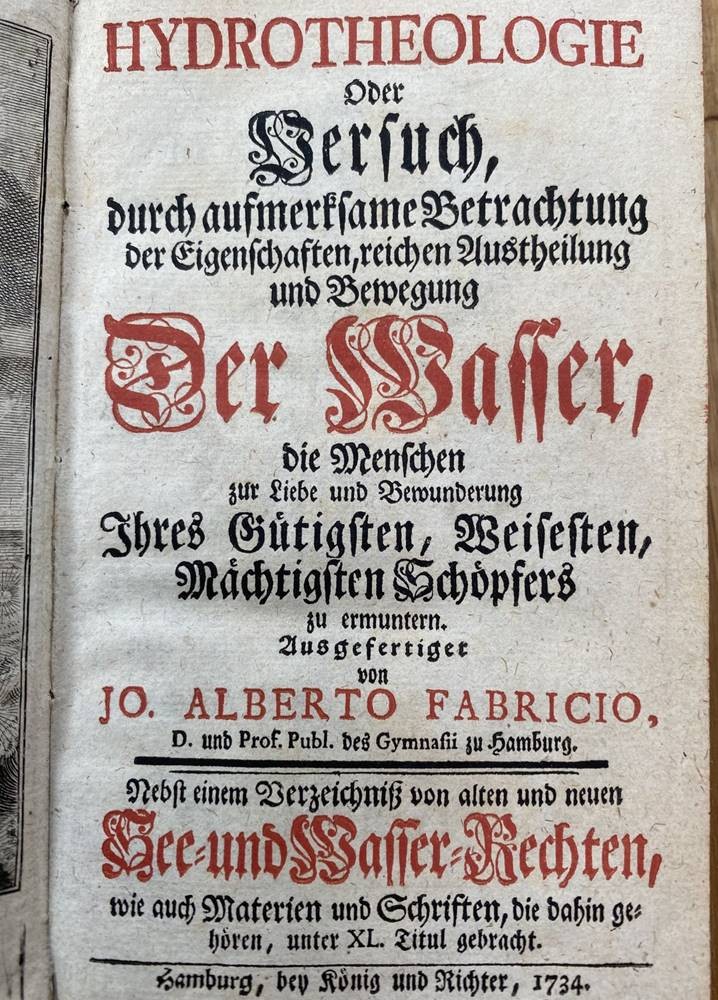 HYDROTHEOLOGIE
Oder
Versuch,
durch aufmerksame Betrachtung
der Eigenschaften, reichen Austheilung
und Bewegung
Der Wasser,
die Menschen
zur Liebe und Bewunderung
Ihres Gütigsten, Weisesten,
Mächtigsten Schöpfers
zu ermuntern.
Ausgefertiget
von
JO. ALBERTO FABRICIO,
D. und Prof. Publ. des Gymnasii zu Hamburg.
Nebst einem Verzeichniß von alten und neuen
See-und Wasser-Rechten,
wie auch Materien und Schriften, die dahin ge-
hören, unter XL. Titul gebracht.
Hamburg, bey König und Richter, 1734.